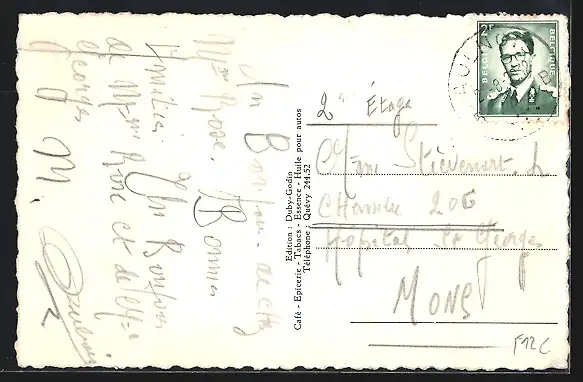 Un Bonjour de chez
Mme Rose. Bonnes
Amitiés. Un Bonjour
de Mme Rose et de Mr
Georges
M.
Edition : Duby-Godin
Café - Epicerie - Tabacs - Essence - Huile pour autos
Téléphone : Quévy 244.52
BELGIE BELGIQUE
2F
2me Étage
Mme Stiévenart
Chambre 206
Hôpital St Georges
MONS
F12C